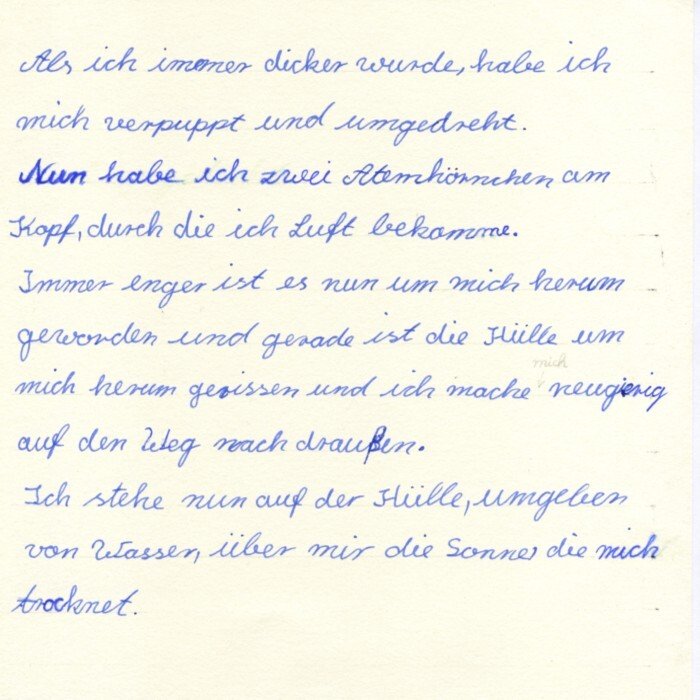 Als ich immer dicker wurde, habe ich
mich verpuppt und umgedreht.
Nun habe ich zwei Atemhörnchen am
Kopf, durch die ich Luft bekomme.
Immer enger ist es nun um mich herum
geworden und gerade ist die Hülle um
mich
mich herum gerissen und ich mache neugierig
auf den Weg nach draußen.
Ich stehe nun auf der Hülle, umgeben
von Wasser, über mir die Sonne, die mich
trocknet.